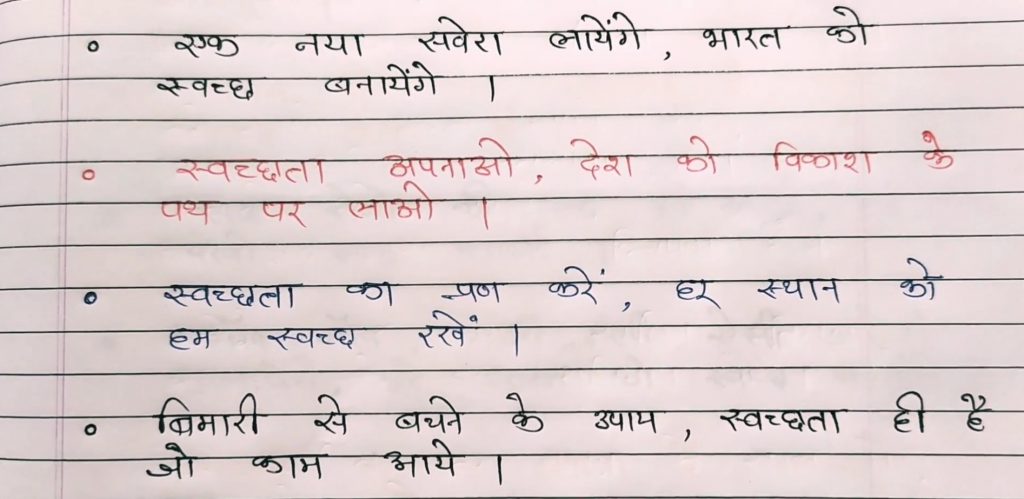 एक नया सवेरा लायेंगे, भारत को
स्वच्छ बनायेंगे ।
स्वच्छता अपनाओ, देश को विकाश के
पथ पर लाओ ।
स्वच्छता का प्रण करें, हर स्थान को
हम स्वच्छ रखें ।
बिमारी से बचने के उपाय, स्वच्छता ही है
जो काम आये ।